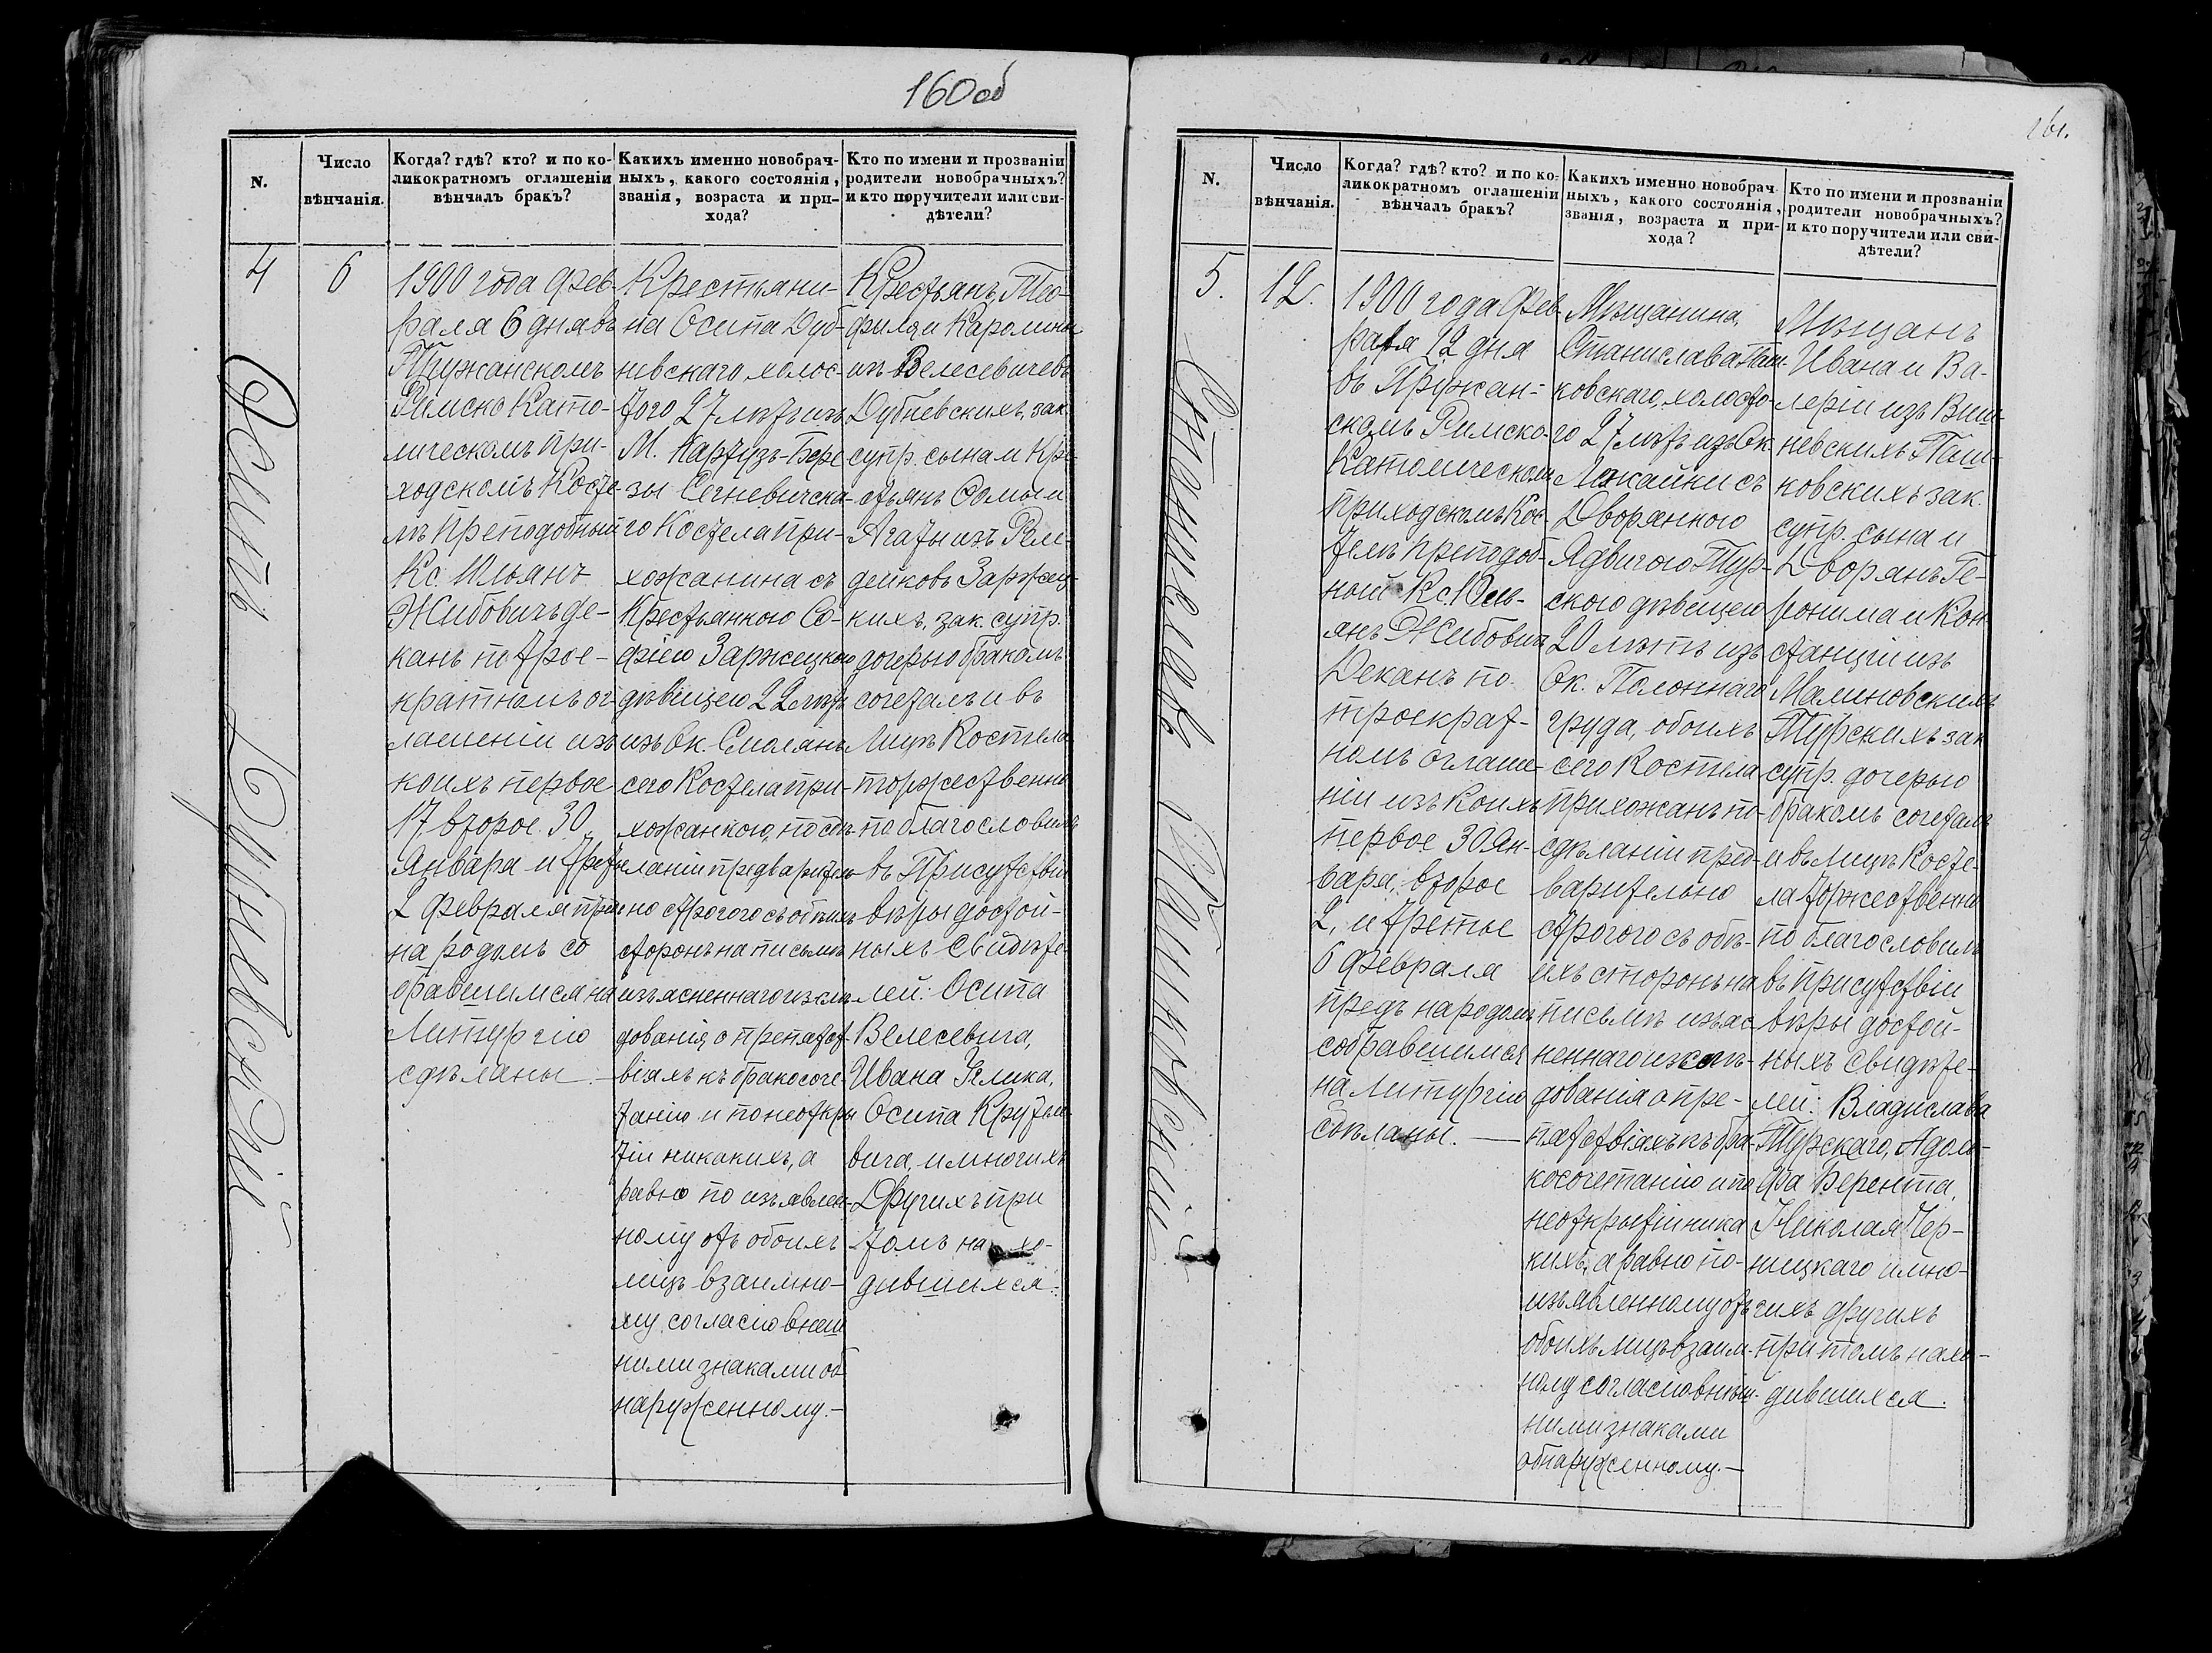 160 об
N.
Число
вѣнчанія.
Когда? гдѣ? кто? и по ко-
ликократномъ оглашеніи
вѣнчалъ бракъ?
Какихъ именно новобрач-
ныхъ, какого состоянія,
званія, возраста и при-
хода?
Кто по имени и прозваніи
родители новобрачныхъ?
и кто поручители или сви-
дѣтели?
4
6
Осипъ Дубневскій
1900 года Фев-
раля 6 дня въ
Пружанскомъ
Римско Като-
лическомъ при-
ходскомъ Косте-
лѣ Преподобный
Кс. Юльянъ
Жибовичъ де-
канъ по трое-
кратномъ ог-
лашеніи изъ
коихъ первое
17 второе 30
Января и третье
2 февраля при
народомъ со
бравшимся на
Литургію
сдѣланы.
Крестьяни-
на Осипа Дуб-
невскаго холос-
того 27 лѣтъ изъ
М. Картузъ-Бере
зы Сегневичска-
го Костела при-
хожанина съ
Крестьянкою Со-
фіею Заржецкою
дѣвицею 22 лѣтъ
изъ Ок. Смолянъ
сего Костела при-
хожанкою, по сдѣ-
ланіи предваритель
но строгого съ обѣихъ
сторонъ на письмѣ
изъясненнаго изслѣ-
дованія о препятст-
віяхъ къ бракосоче-
танію и по неоткры
тіи никакихъ, а
равно по изъявлен-
ному отъ обоихъ
лицъ взаимно-
му согласію внѣш
ними знаками об
наруженному.-
Крестьянъ Тео-
филя и Каролины
изъ Велесевичевъ
Дубневскихъ, зак.
супр. сына и Кре-
стьянъ Ѳомы и
Агаты изъ Рем-
дейковъ Заржец-
кихъ, зак. супр.
дочерью бракомъ
сочеталъ и въ
Лицѣ Костела
торжественно
поблагословилъ
въ Присутствіи
вѣры достой-
ныхъ Свидѣте-
лей: Осипа
Велесевича,
Ивана Улика,
Осипа Крутеле-
вича, и многихъ
Другихъ при
томъ нахо-
дившихся.
161.
N.
Число
вѣнчанія.
Когда? гдѣ? кто? и по ко-
ликократномъ оглашеніи
вѣнчалъ бракъ?
Какихъ именно новобрач-
ныхъ, какого состоянія,
званія, возраста и при-
хода?
Кто по имени и прозваніи
родители новобрачныхъ?
и кто поручители или сви-
дѣтели?
5.
12.
Станиславъ Пашковскій
1900 года Фев-
раля 12 дня
въ Пружан-
скомъ Римско-
Католическомъ
приходскомъ Кос-
телѣ преподоб-
ный Кс. Юль-
янъ Жибовичъ
Деканъ по
троекрат-
номъ оглаше-
ніи изъ коихъ
первое 30 Ян-
варя, второе
2, и третье
6 февраля
предъ народомъ
собравшимся
на Литургію
сдѣланы. —
Мѣщанина,
Станислава Паш-
ковскаго, холосто-
го 27 лѣтъ изъ Ок.
Можайки съ
Дворянкою
Ядвигою Тур-
скою дѣвицею
20 лѣтъ изъ
Ок. Полоннаго
груда, обоихъ
сего Костела
прихожанъ по
сдѣланіи пред-
варительно
строгого съ обѣ-
ихъ сторонъ на
письмѣ изъяс
неннаго изслѣ-
дованія о пре-
пятствіяхъ къ бра-
косочетанію и по
неоткрытіи ника
кихъ, а равно по-
изъявленному отъ
обоихъ лицъ взаим-
ному согласію внѣш-
ними знаками
обнаруженному.-
Мѣщанъ
Ивана и Ва-
леріи изъ Виш-
невскихъ Паш-
ковскихъ зак.
супр. сына и
Дворянъ Ге-
ронима и Кон
станціи изъ
Малиновскихъ
Турскихъ зак
супр. дочерью
бракомъ сочеталъ
и въ Лицѣ Косте-
ла торжественно
поблагословилъ
въ присутствіи
вѣры достой-
ныхъ Свидѣте-
лей: Владислава
Турскаго, Адоль-
фа Берента,
Николая Чер-
ницкаго и мно-
гихъ другихъ
при томъ нахо-
дившихся.